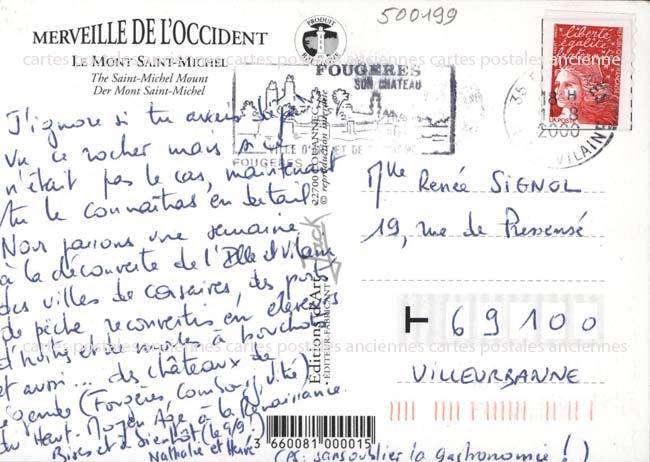 500199
MERVEILLE DE L'OCCIDENT
LE MONT SAINT-MICHEL
The Saint-Michel Mount
Der Mont Saint-Michel
PRODUIT
FOUGERES
SON CHATEAU
VILLE D'ART ET DE
FOUGERES
35
18 H
1-8
2000
VILAINE
liberté
égalité
fraternité
LA POSTE
cartes postales anciennes cartes postales anciennes cartes postales anciennes
J'ignore si tu avais déjà
vu ce rocher mais si ce
n'était pas le cas, maintenant
tu le connaîtras en détail
Nous passons une semaine
à la découverte de l'Ille et Vilaine
des villes de corsaires, des ports
de pêche reconvertis en éleveurs
d'huîtres et de moules à bouchots
et aussi... des châteaux de
légende (Fougères, Combourg, Vitré)
du Haut-Moyen Age à la Renaissance.
Bises et à bientôt (le 9/9!)
Nathalie et Hervé
(PS: sans oublier la gastronomie!)
Mlle Renée SIGNOL
19, rue de Pressensé
69100
VILLEURBANNE
Editions d'Art Jack
EDITEUR-FABRICANT
22700 LOUANNEC
© reproduction interdite
3 660081 000015
cartes postales anciennes cartes postales anciennes cartes postales anciennes